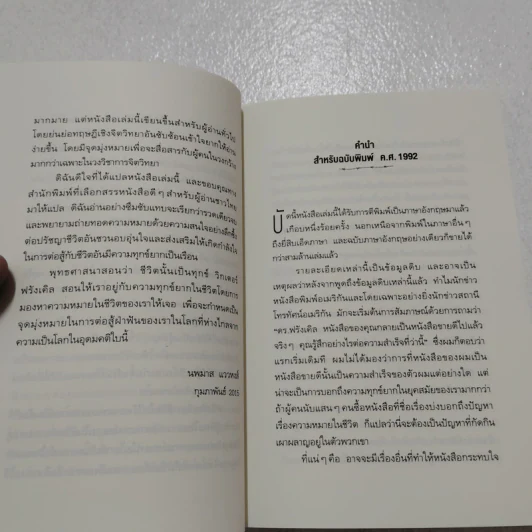 มากมาย แต่หนังสือเล่มนี้เขียนขึ้นสำหรับผู้อ่านทั่วไป
โดยย่นย่อทฤษฎีเชิงจิตวิทยาอันซับซ้อนเข้าใจยากให้อ่าน
ง่ายขึ้น โดยมีจุดมุ่งหมายเพื่อจะสื่อสารกับผู้คนในวงกว้าง
มากกว่าเฉพาะในวงวิชาการจิตวิทยา
ดิฉันดีใจที่ได้แปลหนังสือเล่มนี้ และขอบคุณทาง
สำนักพิมพ์ที่เลือกสรรหนังสือดีๆ สำหรับผู้อ่านชาวไทย
มาให้แปล ดิฉันอ่านอย่างซึมซับแทบจะเรียกว่ารวดเดียวจบ
และพยายามถ่ายทอดความหมายด้วยความสนใจอย่างลึกซึ้ง
ต่อปรัชญาชีวิตอันชวนอบอุ่นใจและส่งเสริมให้เกิดกำลังใจ
ในการต่อสู้กับชีวิตอันมีความทุกข์ยากเป็นเรือน
พุทธศาสนาสอนว่า ชีวิตนั้นเป็นทุกข์ วิกเตอร์
ฟรังเคิล สอนให้เราอยู่กับความทุกข์ยากในชีวิตโดยการ
มองหาความหมายในชีวิตของเราให้เจอ เพื่อจะกำหนดเป็น
จุดมุ่งหมายในการต่อสู้ฝ่าฟันของเราในโลกที่ห่างไกลจาก
ความเป็นโลกในอุดมคติใบนี้
นพมาส แววหงส์
กุมภาพันธ์ 2015
คำนำ
สำหรับฉบับพิมพ์ ค.ศ. 1992
บัดนี้หนังสือเล่มนี้ได้รับการตีพิมพ์เป็นภาษาอังกฤษมาแล้ว
เกือบหนึ่งร้อยครั้ง นอกเหนือจากพิมพ์ในภาษาอื่นๆ
ถึงยี่สิบเอ็ดภาษา และฉบับภาษาอังกฤษอย่างเดียวก็ขายได้
กว่าสามล้านเล่มแล้ว
รายละเอียดเหล่านี้เป็นข้อมูลดิบ และอาจเป็น
เหตุผลว่าหลังจากพูดถึงข้อมูลดิบเหล่านี้แล้ว ทำไมนักข่าว
หนังสือพิมพ์อเมริกันและโดยเฉพาะอย่างยิ่งนักข่าวสถานี
โทรทัศน์อเมริกัน มักจะเริ่มต้นการสัมภาษณ์ด้วยการถามว่า
"ดร.ฟรังเคิล หนังสือของคุณกลายเป็นหนังสือขายดีไปแล้ว
จริงๆ คุณรู้สึกอย่างไรต่อความสำเร็จที่ว่านี้" ซึ่งผมก็ตอบว่า
แรกเริ่มเดิมที ผมไม่ได้มองว่าการที่หนังสือของผมเป็น
หนังสือขายดีนั้นเป็นความสำเร็จของตัวผมแต่อย่างใด แต่
น่าจะเป็นการบอกถึงความทุกข์ยากในยุคสมัยของเรามากกว่า
ถ้าผู้คนนับแสนๆ คนซื้อหนังสือที่ชื่อเรื่องบ่งบอกถึงปัญหา
เรื่องความหมายในชีวิต ก็แปลว่านี่จะต้องเป็นปัญหาที่กัดกิน
เผาผลาญอยู่ในตัวพวกเขา
ที่แน่ๆ คือ อาจจะมีเรื่องอื่นที่ทำให้หนังสือกระทบใจ